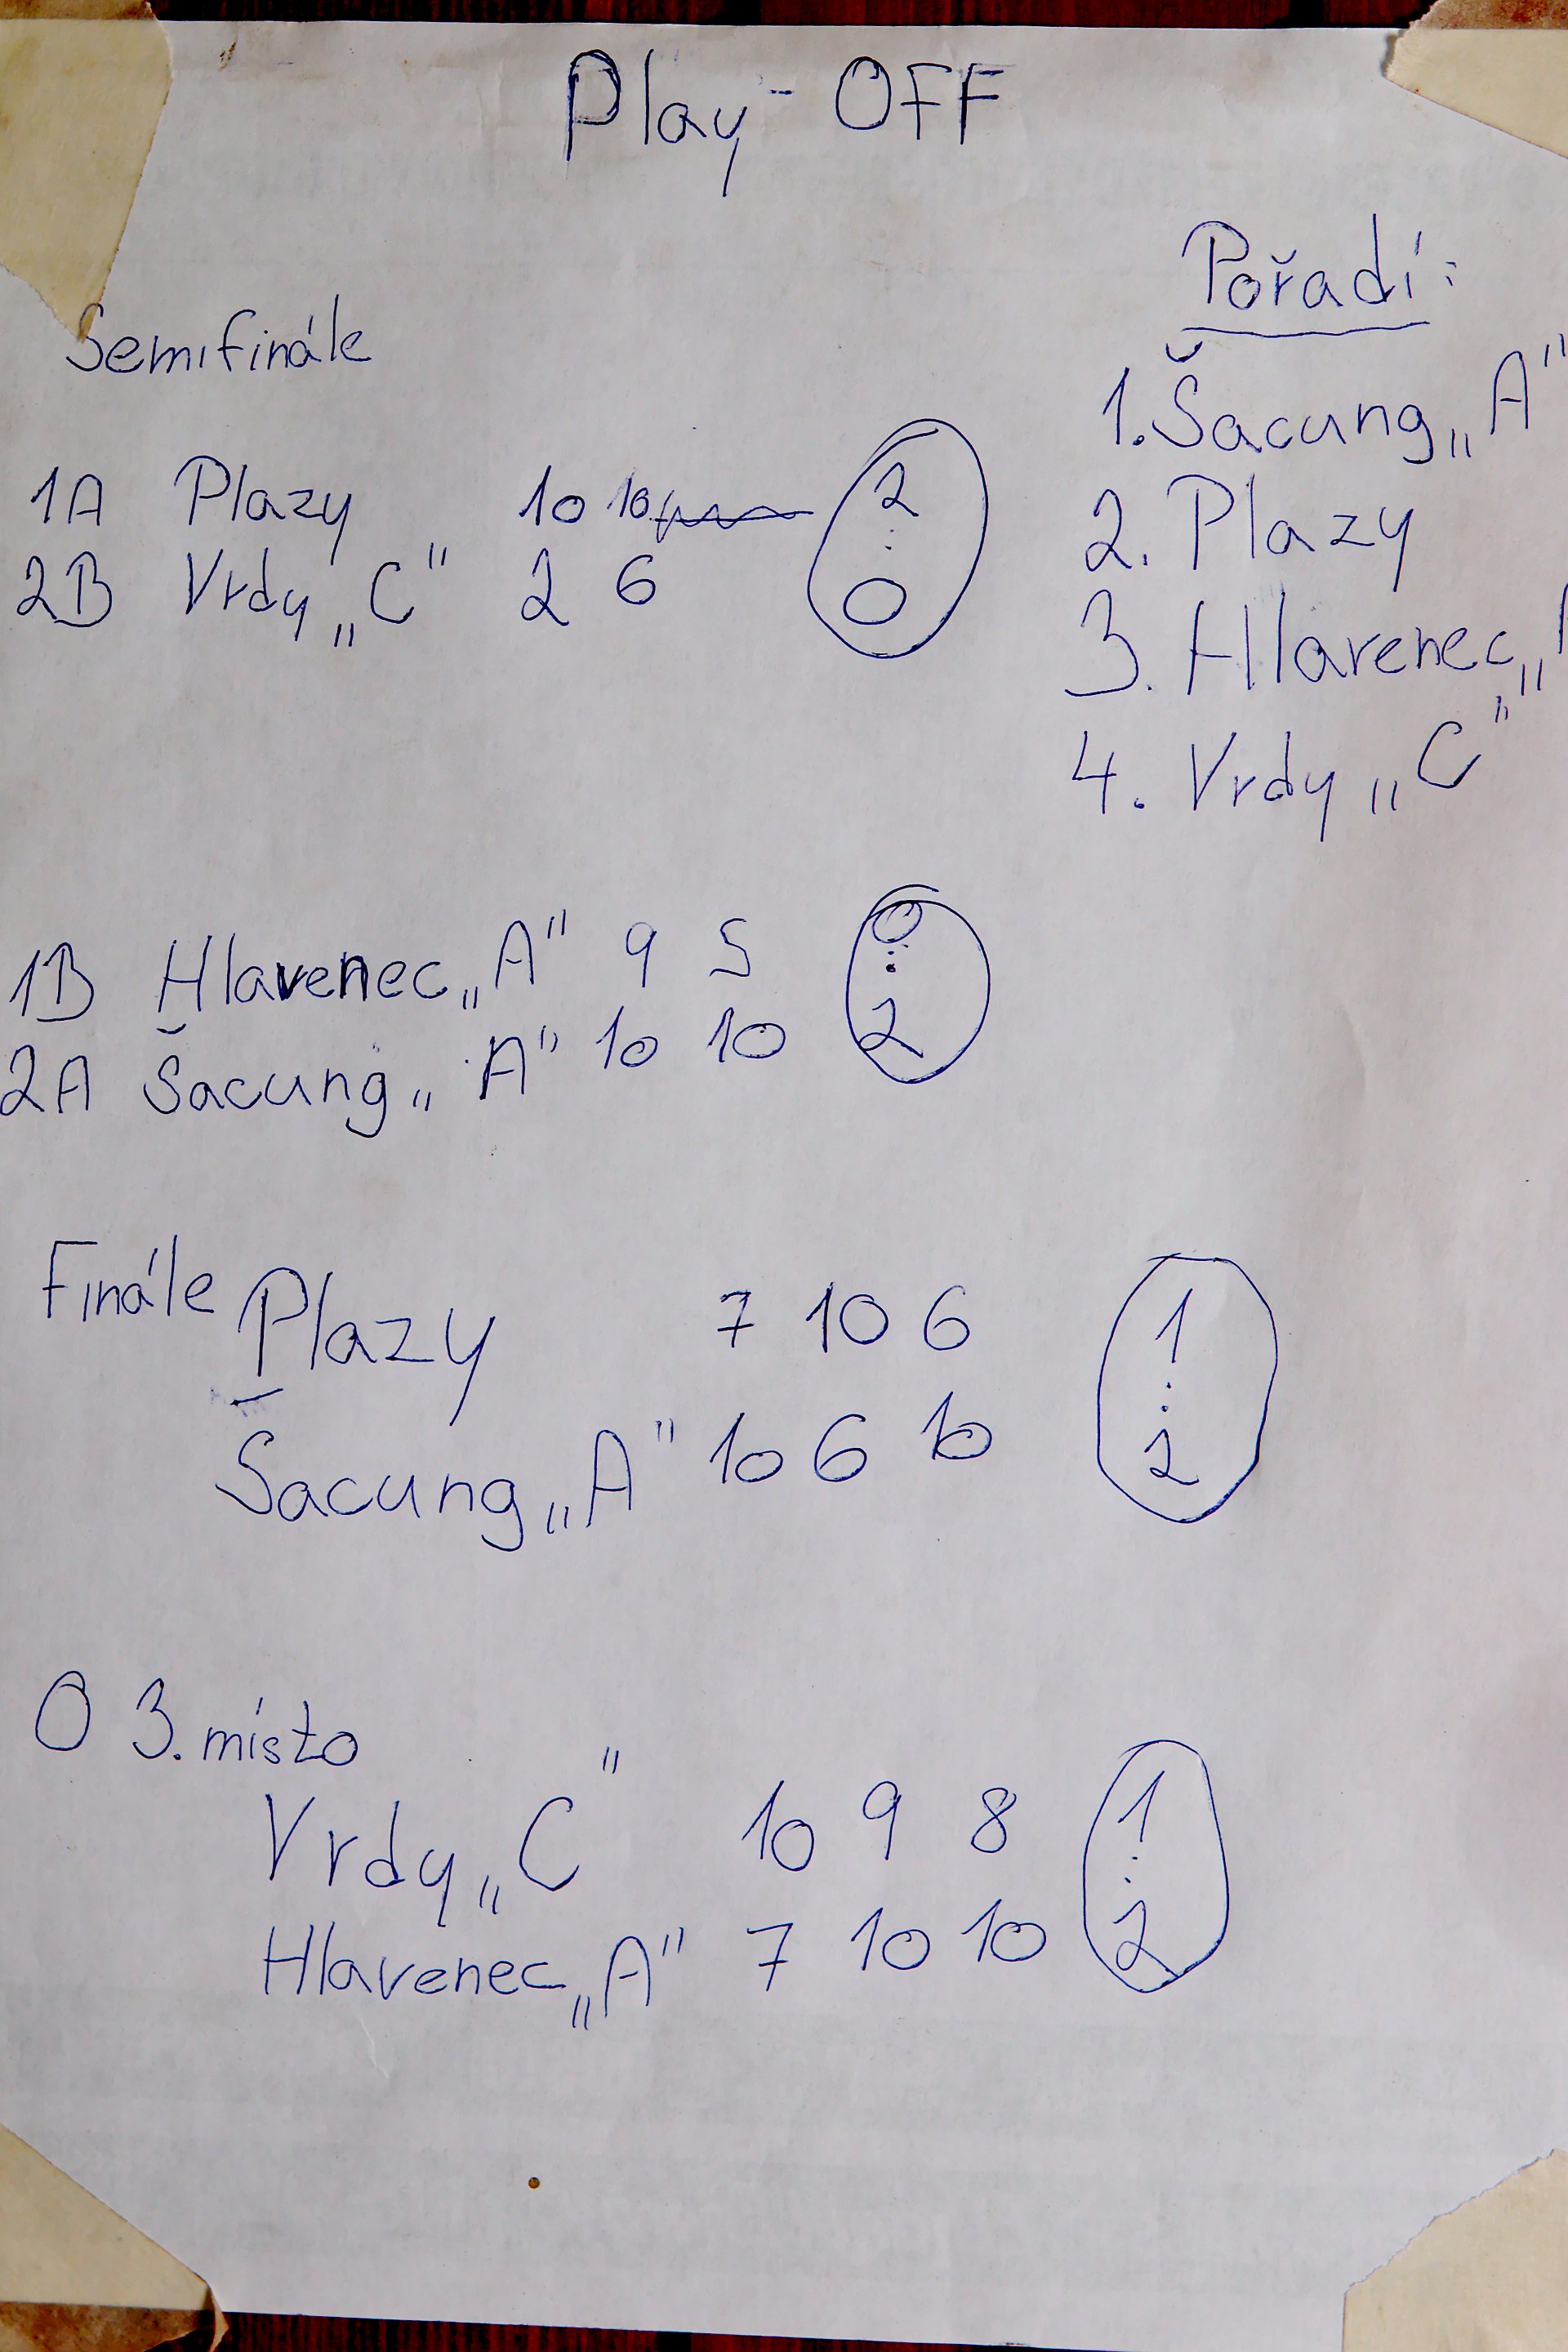 Play-OFF
Semifinále
1A Plazy 10 10 2
:
2B Vrdy „C" 2 6 0
1B Hlavenec „A" 9 5 0
:
2A Šacung „A" 10 10 2
Finále Plazy 7 10 6 1
:
Šacung „A" 10 6 10 2
O 3. místo
Vrdy „C" 10 9 8 1
:
Hlavenec „A" 7 10 10 2
Pořadí:
1. Šacung „A"
2. Plazy
3. Hlavenec „
4. Vrdy „C"